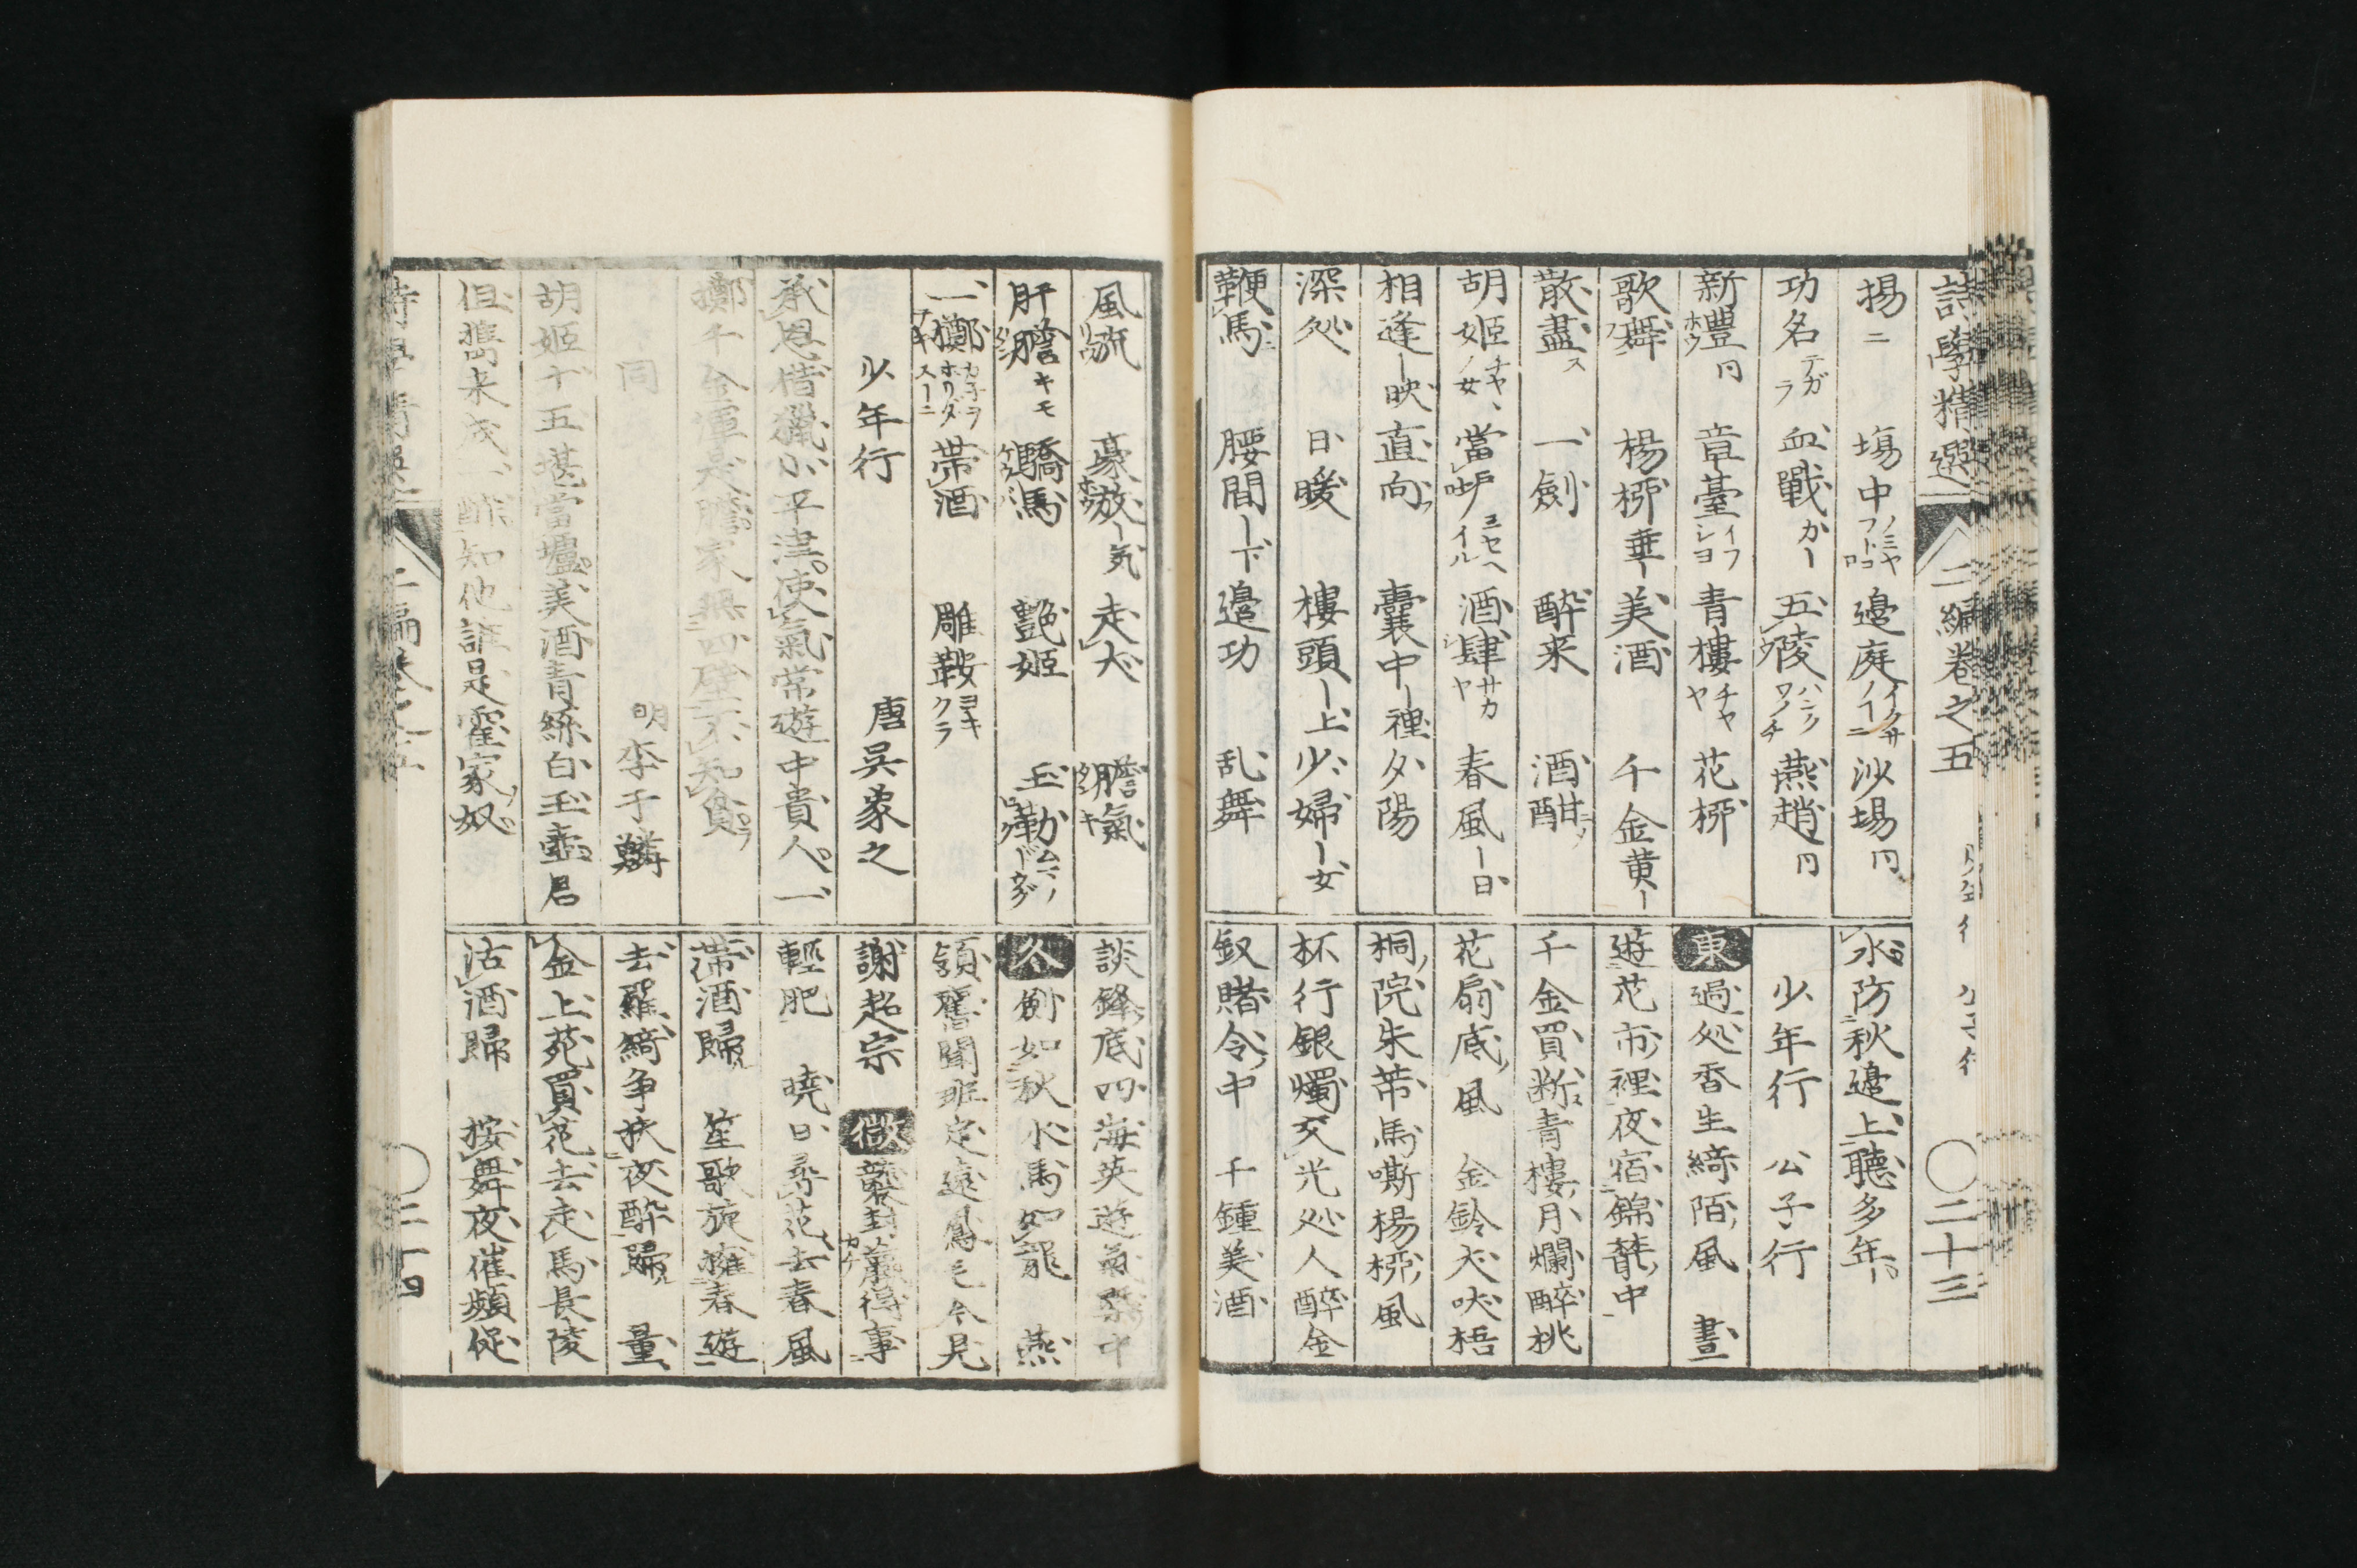 詩學精選 二編卷之五 少年行 公子行 〇二十三
揚ニ 塲中 邉庭 沙塲
功名 血戰 五陵 燕趙
新豊 章臺 青樓 花桺
歌舞 楊桺垂 美酒 千金黄
散盡ス 一劍 醉来 酒酣
胡姬 當垆 酒肆 春風日
相逢映 直向 囊中裡 夕陽
深処 日暖 樓頭上 少婦女
鞭馬 腰間下 邉功 乱舞
水防秋邉上聴多年
少年行 公子行
東 過処香生綺陌風 晝
遊花市裡夜宿錦叢中
千金買断青樓月爛醉桃
花扇底風 金鈴犬吠梧
桐院朱芾馬嘶楊桺風
杯行銀燭交光処人醉金
釵賭令中 千鍾美酒
風流 豪放気 走犬 膽氣
肝膽キモ 驕馬 艶姬 玉勒
一擲 帯酒 雕鞍ヨキクラ
少年行 唐吳象之
承恩借獵小平津使氣常遊中貴人一
擲千金渾是膽家無四壁不知貧
同 明李于鱗
胡姬十五堪當壚美酒青絲白玉壺君
但攜来成一醉知他誰是霍家奴
談鋒底四海英遊氣槩中
冬 劍如秋水馬如龍 燕
頷舊聞班定遠鳳毛今見
謝超宗 微 襲封薫得事
輕肥 暁日尋花去春風
帯酒歸 笙歌旋擁春遊
去羅綺争扶夜醉歸 量
金上苑買花去走馬長陵
沽酒歸 按舞夜催頻促
二編卷之五 〇二十四